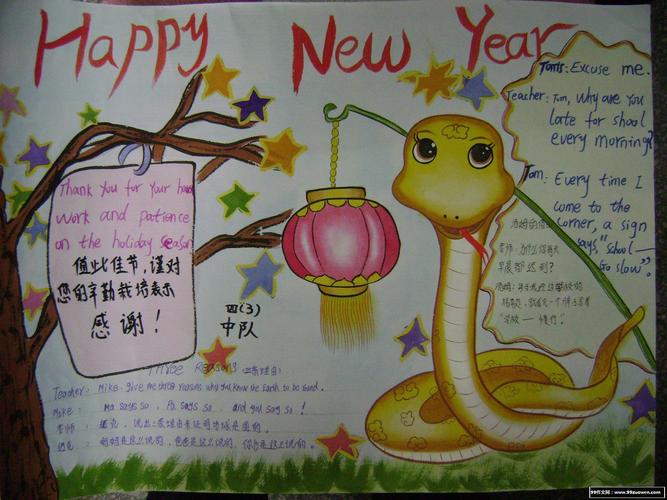 Happy New Year
Thank you for your hard
work and patience
on the holiday season
值此佳节,谨对
您的辛勤栽培表示
感谢!
四(3)
中队
Tom: Excuse me.
Teacher: Tom, why are you
late for shool
every morning?
Tom: Every time I
come to the
corner, a sign
says, "School —
Go slow".
老师:为什么你每天
早晨都迟到?
"学校——慢行"
Three Reasons
Teacher: Mike, give me three reasons why you know the Earth to be round.
Mike: Ma says so, Pa says so, and you say so!
老师:
妈妈是这么说的,爸爸是这么说的,你也是这么说的。
99作文网:www.99zuowen.com